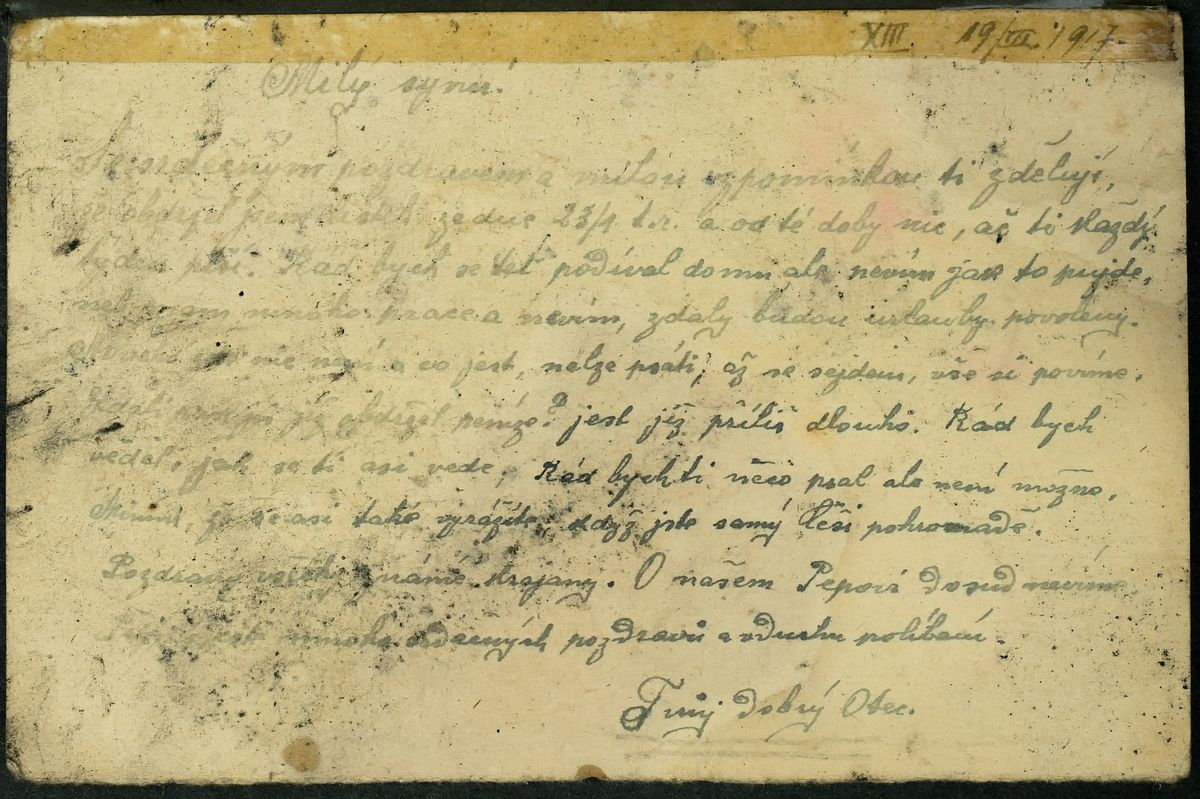 XIII. 19/VII. 1917.
Milý synu!
Se srdečným pozdravem a milou vzpomínkou ti zděluji,
že obdržel jsem lístek ze dne 23/4 t.r. a od té doby nic, ač ti každý
týden píši. Rád bych se též podíval domu ale nevím jak to pujde,
neb mám mnoho prace a nevím, zdaly budou urlauby povoleny.
nic není a co jest, nelze psáti, až se sejdem, vše si povíme.
již obdržel peníze? jest již příliš dlouho. Rád bych
věděl, jak se ti asi vede, Rád bych ti něco psal ale není možno.
Mínim, že se asi také vyrážíte, když jste samý Češi pohromadě.
Pozdravuj všecky známé krajany. O našem Pepovi dosud nevíme.
mnoho srdečných pozdravů a vduchu políbení.
Tvuj dobrý Otec.